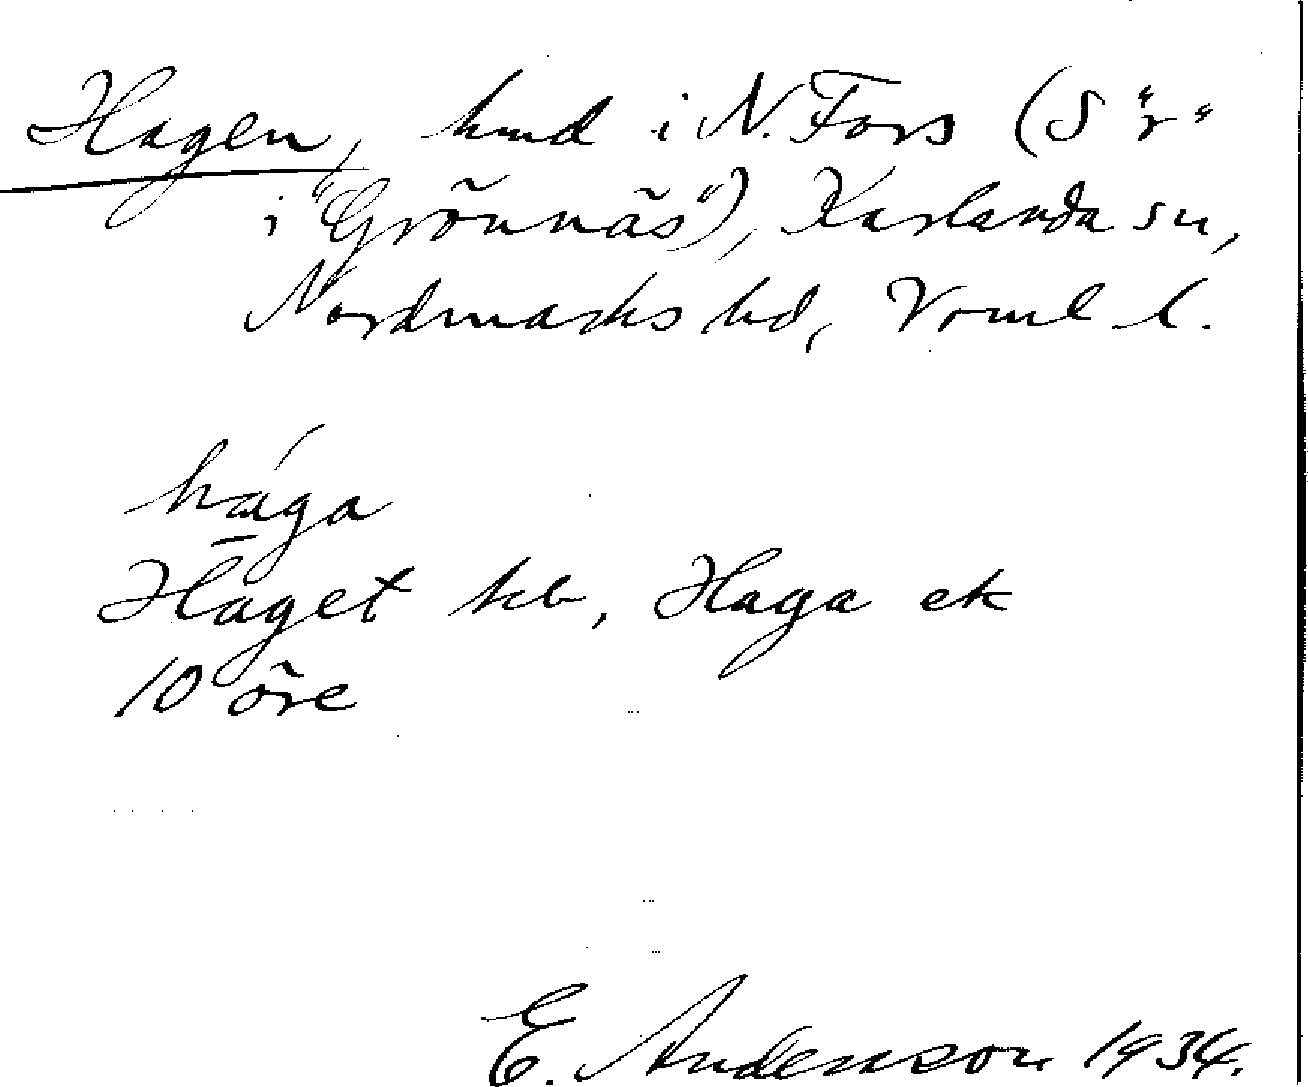 Hagen, hmd i N. Fors (S "r"
i "Grönnäs"), Karlanda sn,
Nordmarks hd, Vrml l.
hága
Haget kb, Haga ek
10 öre
E. Andersson 1934.